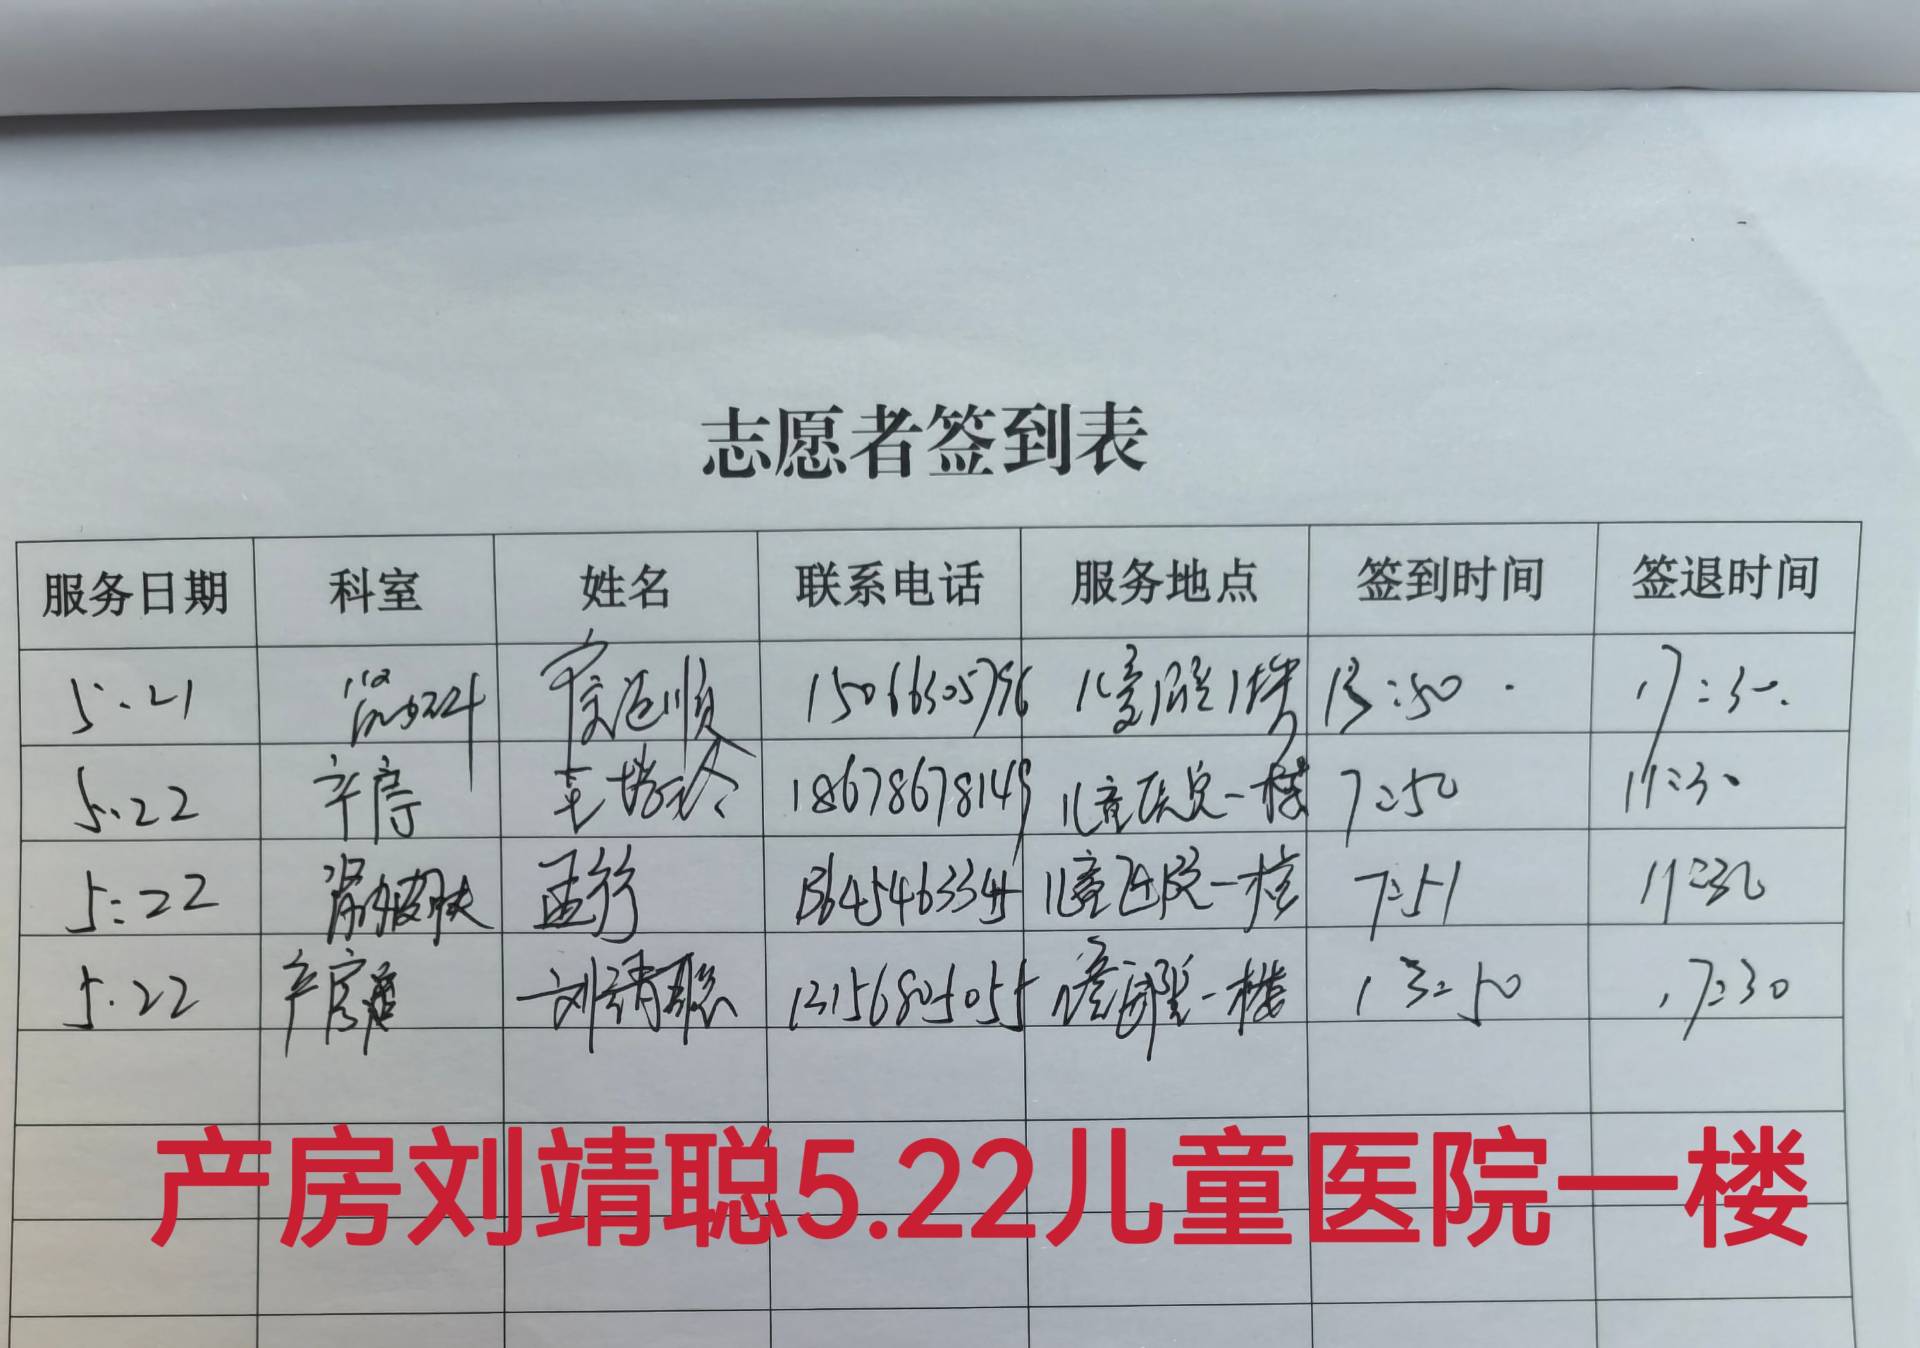 志愿者签到表
服务日期 科室 姓名 联系电话 服务地点 签到时间 签退时间
5.21 顺 15066305796 儿童医院1楼 13:50 17:30
5.22 产房 18678678149 儿童医院一楼 7:50 11:30
5:22 皮肤 孟行 儿童医院一楼 7:51 11:30
5.22 产房 刘靖聪 13156805055 一楼 13:50 17:30
产房刘靖聪5.22儿童医院一楼